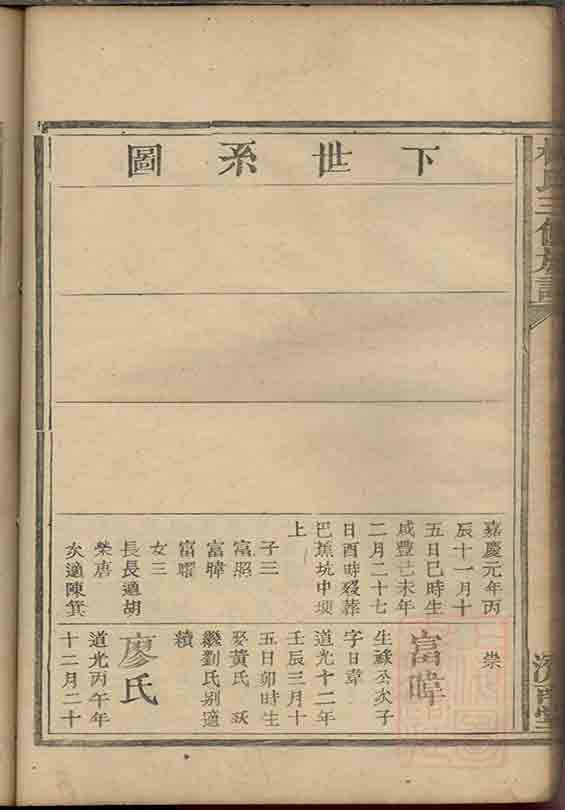 下世系圖
嘉慶元年丙
辰十一月十
五日巳時生
咸豐己未年
二月二十七
日酉時歿葬
巴蕉坑中埧
上
子三
富照
富暐
富曜
女三
長長適胡
榮唐
次適陳箕
崇
富暐
生蘇公次子
字日韋
道光十二年
壬辰三月十
五日卯時生
娶黃氏
繼劉氏别適
續
廖氏
道光丙午年
十二月二十
氏三修族譜